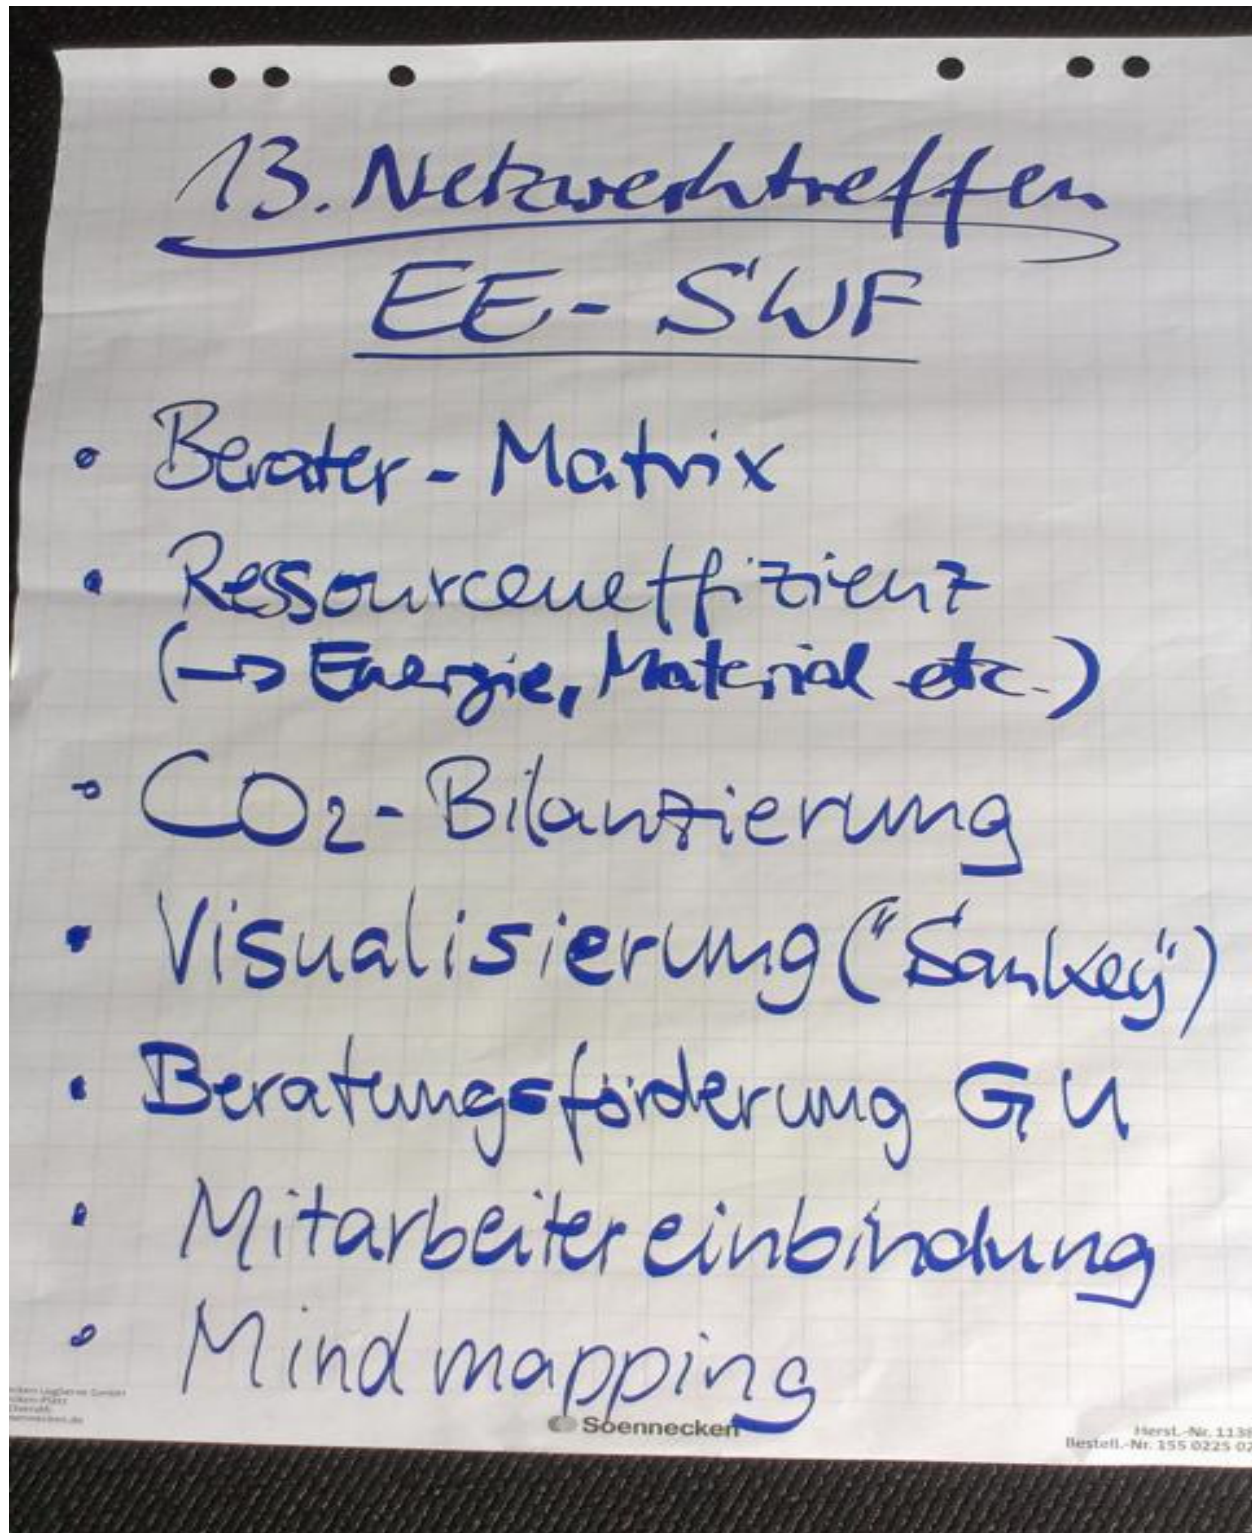 13. Netzwerktreffen
EE - SWF
• Berater - Matrix
• Ressourceneffizienz
(→ Energie, Material etc.)
• CO2 - Bilanzierung
• Visualisierung ("Sankey")
• Beratungsförderung GU
• Mitarbeitereinbindung
• Mindmapping
Soennecken
Herst.-Nr. 1138
Bestell.-Nr. 155 0225 02